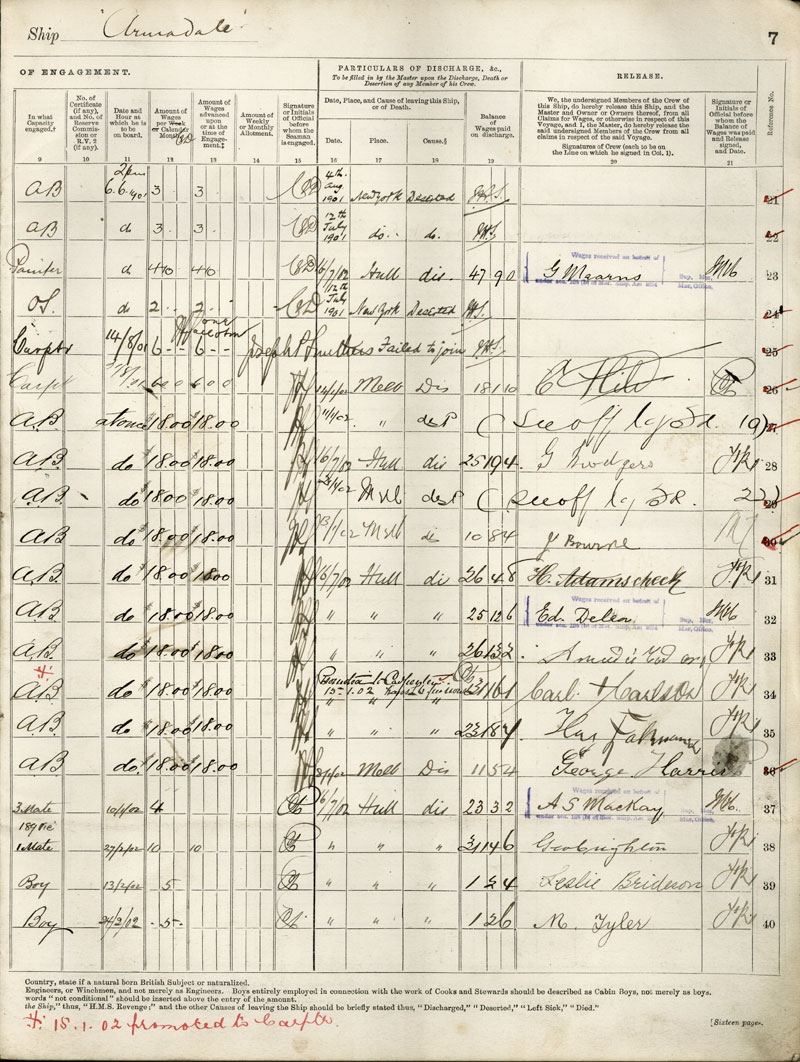 Ship 'Armadale' 7
OF ENGAGEMENT.
PARTICULARS OF DISCHARGE, &c.,
To be filled in by the Master upon the Discharge, Death or
Desertion of any Member of his Crew.
RELEASE.
In what Capacity engaged.†
No. of Certificate (if any), and No. of Reserve Commission or R.V. 2 (if any).
Date and Hour at which he is to be on board.
Amount of Wages per Week or Calendar Month.
Amount of Wages advanced upon or at the time of Engagement.‡
Amount of Weekly or Monthly Allotment.
Signature or Initials of Official before whom the Seaman is engaged.
Date, Place, and Cause of leaving this Ship, or of Death.
Date. Place. Cause.§
Balance of Wages paid on discharge.
We, the undersigned Members of the Crew of this Ship, do hereby release this Ship, and the Master and Owner or Owners thereof, from all Claims for Wages, or otherwise in respect of this Voyage, and I, the Master, do hereby release the said undersigned Members of the Crew from all claims in respect of the said Voyage.
Signatures of Crew (each to be on the Line on which he signed in Col. 1).
Signature or Initials of Official before whom the Balance of Wages was paid and Release signed, and Date.
Reference No.
9 10 11 12 13 14 15 16 17 18 19 20 21
AB 6.6.01 3 3 4th Aug 1901 New York Deserted 21
AB do 3 3 12th July 1901 do. do. 22
Painter d 40 40 16/7/02 Hull dis. 47 9 0 G Mearns 23
Wages received on behalf of
OS. do 2 2 12th July 1901 New York Deserted 24
Carptr 14/8/01 6 - - 6 - Joseph Smithers Failed to join 25
Carpt 6 0 0 6 0 0 Melb Dis 18 1 10 26
A.B. at once 18.00 18.00 11/1/02 " des (See off log Fol. 19) 27
AB. do 18.00 18.00 16/7/02 Hull dis 25 19 4 28
A.B. do 18.00 18.00 Melb des (See off log Fol. 22) 29
AB do 18.00 18.00 13/1/02 Melb dis 10 8 4 J Bourne 30
A.B. do 18.00 18.00 16/7/02 Hull dis 26 4 8 H. Adamscheck 31
A.B. do 18.00 18.00 " " " 25 12 6 Ed. Delen 32
Wages received on behalf of
A.B. do 18.00 18.00 " " " 26 13 2 33
A.B. do 18.00 18.00 15.1.02 " " " 31 16 1 Carl + Carlson 34
A.B. do 18.00 18.00 " " " 23 18 7 35
AB do. 18.00 18.00 Melb Dis 11 5 4 George Harris 36
3 Mate 10/1/02 4 16/7/02 Hull dis 23 3 2 A S Mackay 37
Wages received on behalf of
1 Mate 27/2/02 10 10 " " " 31 14 6 38
Boy 13/2/02 5 " " " 1 2 4 Leslie Brideson 39
Boy 24/2/02 - 5 - " " " 1 2 6 M. Tyler 40
Country, state if a natural born British Subject or naturalized.
Engineers, or Winchmen, and not merely as Engineers. Boys entirely employed in connection with the work of Cooks and Stewards should be described as Cabin Boys, not merely as boys.
words "not conditional" should be inserted above the entry of the amount.
the Ship," thus, "H.M.S. Revenge;" and the other Causes of leaving the Ship should be briefly stated thus, "Discharged," "Deserted," "Left Sick," "Died."
15.1.02 promoted to Carptr.
[Sixteen pages.